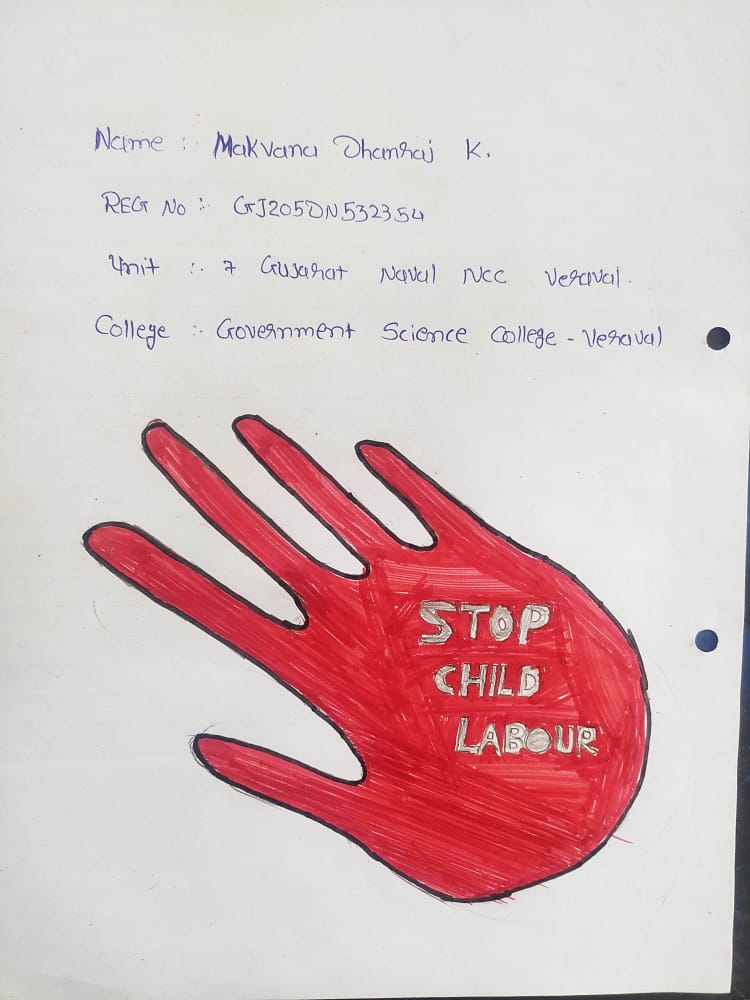 Name :- Makvana Dhanraj K.
REG No :- GJ20SDN532354
Unit :- 7 Gujarat Naval NCC Veraval.
College :- Government Science College - Veraval
STOP
CHILD
LABOUR